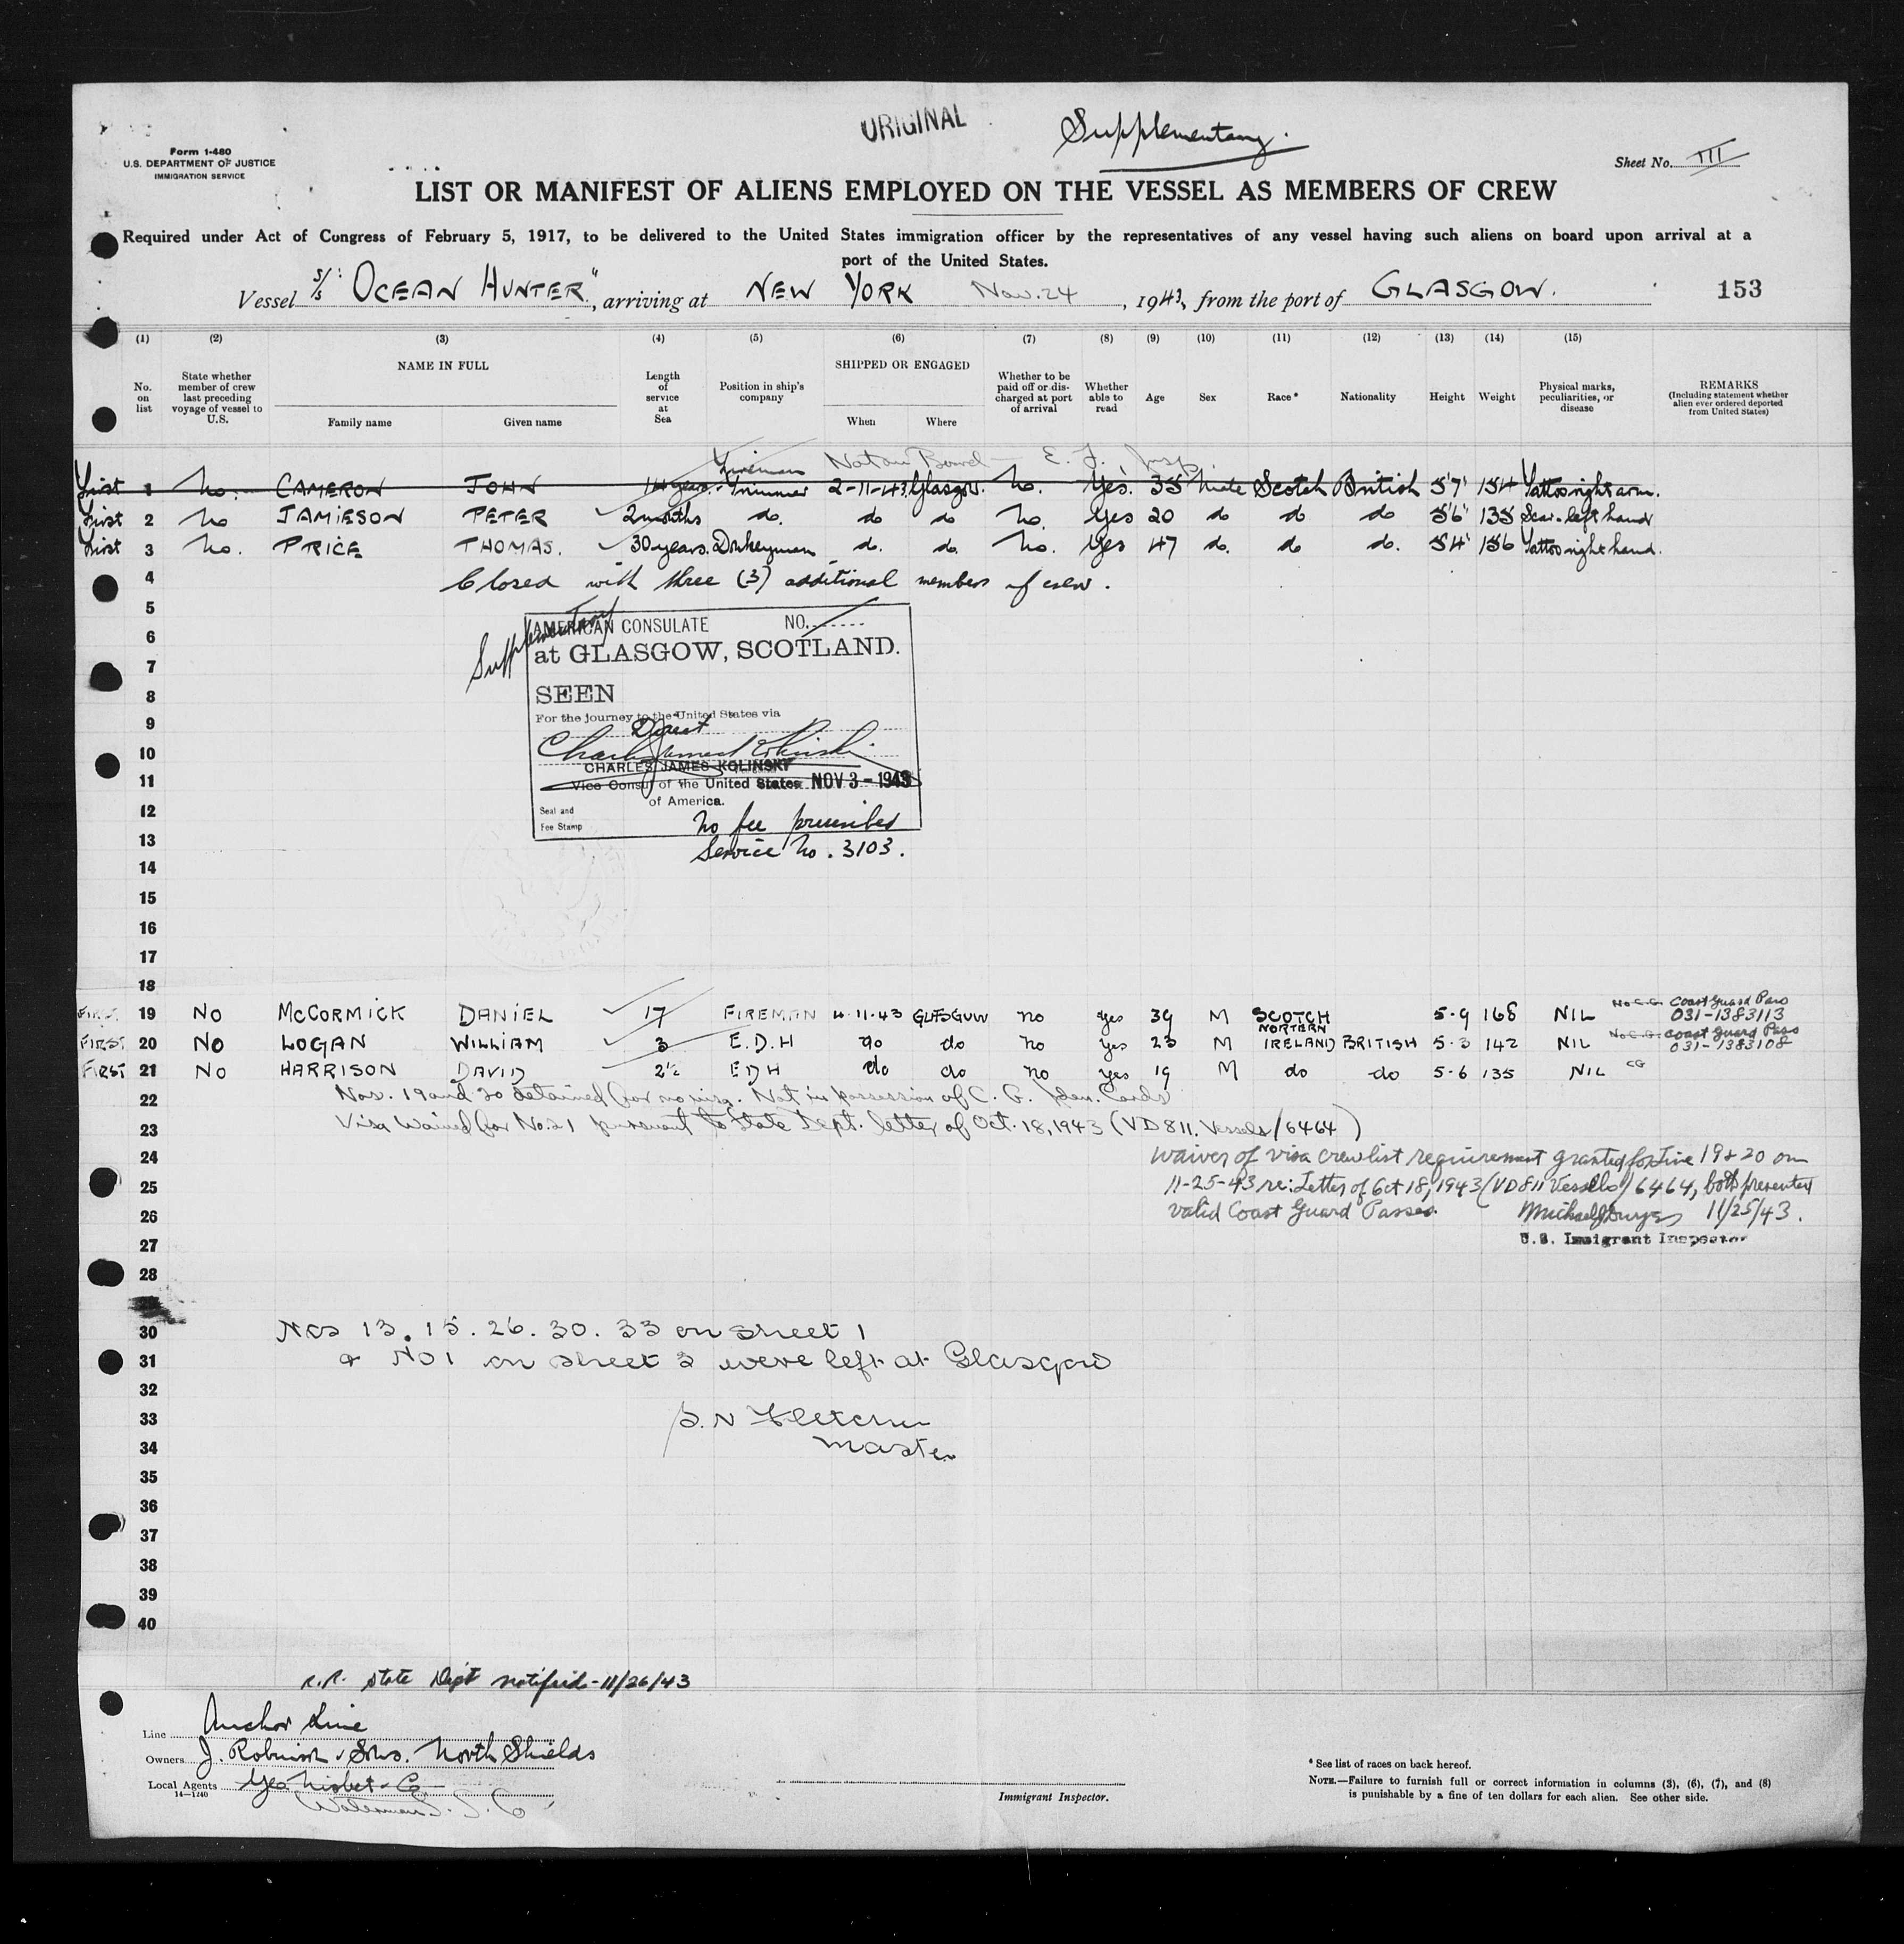 ORIGINAL
Supplementary.
Form I-480
U.S. DEPARTMENT OF JUSTICE
IMMIGRATION SERVICE
Sheet No. III
LIST OR MANIFEST OF ALIENS EMPLOYED ON THE VESSEL AS MEMBERS OF CREW
Required under Act of Congress of February 5, 1917, to be delivered to the United States immigration officer by the representatives of any vessel having such aliens on board upon arrival at a
port of the United States.
Vessel S/S "OCEAN HUNTER", arriving at NEW YORK Nov. 24, 1943, from the port of GLASGOW. 153
(1) (2) (3) (4) (5) (6) (7) (8) (9) (10) (11) (12) (13) (14) (15)
No. on list
State whether member of crew last preceding voyage of vessel to U.S.
NAME IN FULL
Family name Given name
Length of service at Sea
Position in ship's company
SHIPPED OR ENGAGED
When Where
Whether to be paid off or discharged at port of arrival
Whether able to read
Age
Sex
Race*
Nationality
Height
Weight
Physical marks, peculiarities, or disease
REMARKS
(Including statement whether alien ever ordered deported from United States)
Fireman Not on Board — E. J. Insp.
First 1 No. CAMERON JOHN 14 years. Trimmer 2-11-43 Glasgow. No. Yes. 35 Male Scotch British 5'7" 154 Tattoo right arm.
First 2 No JAMIESON PETER 2 months do. do do No. Yes 20 do do do 5'6" 135 Scar. left hand
First 3 No. PRICE THOMAS. 30 years. Donkeyman do. do. No. Yes 47 do. do do. 5'4" 156 Tattoo right hand.
4 Closed with three (3) additional members of crew.
5
Supplementary
AMERICAN CONSULATE NO.
6
at GLASGOW, SCOTLAND.
7
8 SEEN
For the journey to the United States via
9 Direct
10
CHARLES JAMES KOLINSKY
11 Vice Consul of the United States NOV 3 - 1943
of America.
12 Seal and
Fee Stamp
No fee prescribed
13 Service No. 3103.
14
15
16
17
18
FIRST 19 No McCORMICK DANIEL 17 FIREMAN 4-11-43 GLASGOW no yes 39 M SCOTCH 5-9 168 NIL No C.G. Coast Guard Pass
031-1383113
FIRST 20 No LOGAN WILLIAM 3 E.D.H do do no yes 23 M NORTERN IRELAND BRITISH 5-3 142 NIL No C.G. Coast Guard Pass
031-1383108
FIRST 21 No HARRISON DAVID 2½ EDH do do no yes 19 M do do 5-6 135 NIL CG
22 Nos. 19 and 20 detained for no visa. Not in possession of C. G. Iden. Cards
23 Visa Waived for No. 21 pursuant to State Dept. letter of Oct. 18, 1943 (VD 811. Vessels/6464)
24 Waiver of visa crew list requirement granted for Line 19 & 20 on
25 11-25-43 re: Letter of Oct 18, 1943 (VD 811 Vessels) 6464, both presented
26 valid Coast Guard Passes. 11/25/43.
27 U.S. Immigrant Inspector
28
30 Nos 13. 15. 26. 30. 33 on sheet 1
31 & No 1 on sheet 2 were left at Glasgow
32
33 Fletcher
34 Master
35
36
37
38
39
40
R.R. State Dept notified - 11/26/43
Line Anchor Line
Owners J. Robinson & Sons. North Shields
Local Agents Geo. Nisbet & Co
14—1240
Waterman S. S. Co
Immigrant Inspector.
* See list of races on back hereof.
NOTE.—Failure to furnish full or correct information in columns (3), (6), (7), and (8)
is punishable by a fine of ten dollars for each alien. See other side.